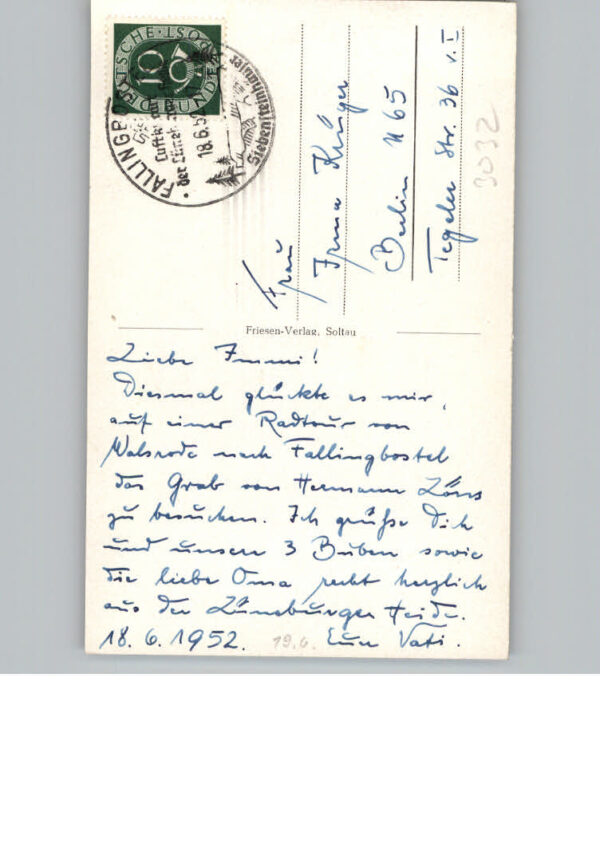 DEUTSCHE BUNDESPOST
10
FALLINGBOSTEL
der Lüneb
18.6.52
Siebensteinhäuser
Frau
Irma Krüger
Berlin N 65
Tegeler Str. 36 v. I
3032
Friesen-Verlag, Soltau
Liebe Immi!
Diesmal glückte es mir,
auf einer Radtour von
Walsrode nach Fallingbostel
das Grab von Hermann Löns
zu besuchen. Ich grüße Dich
und unsere 3 Buben sowie
die liebe Oma recht herzlich
aus der Lüneburger Heide.
18.6.1952. 19.6. Euer Vati.